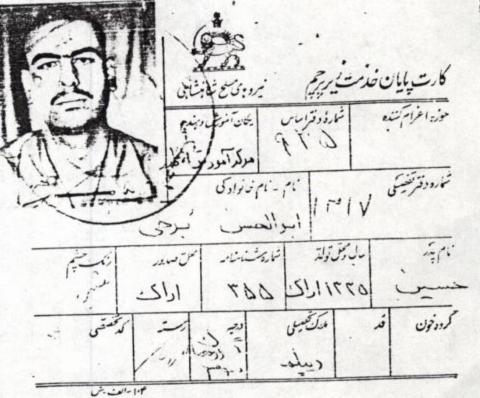 کارت پایان خدمت زیر پرچم
نیروهای مسلح شاهنشاهی
حوزه اعزام کننده
شماره دفتر اساس
۹۳۵
یکان آموزشی
مرکز آموزش
شماره دفتر تفتیشی
۱۳۱۷
نام - نام خانوادگی
ابوالحسن برجی
نام پدر
حسین
سال و محل تولد
۱۳۲۵ اراک
شماره شناسنامه
۳۵۵
محل صدور
اراک
رنگ چشم
گروه خون
قد
مدرک تحصیلی
دیپلم
درجه
رسته
کد تخصصی
۱۰۳-الف.ش